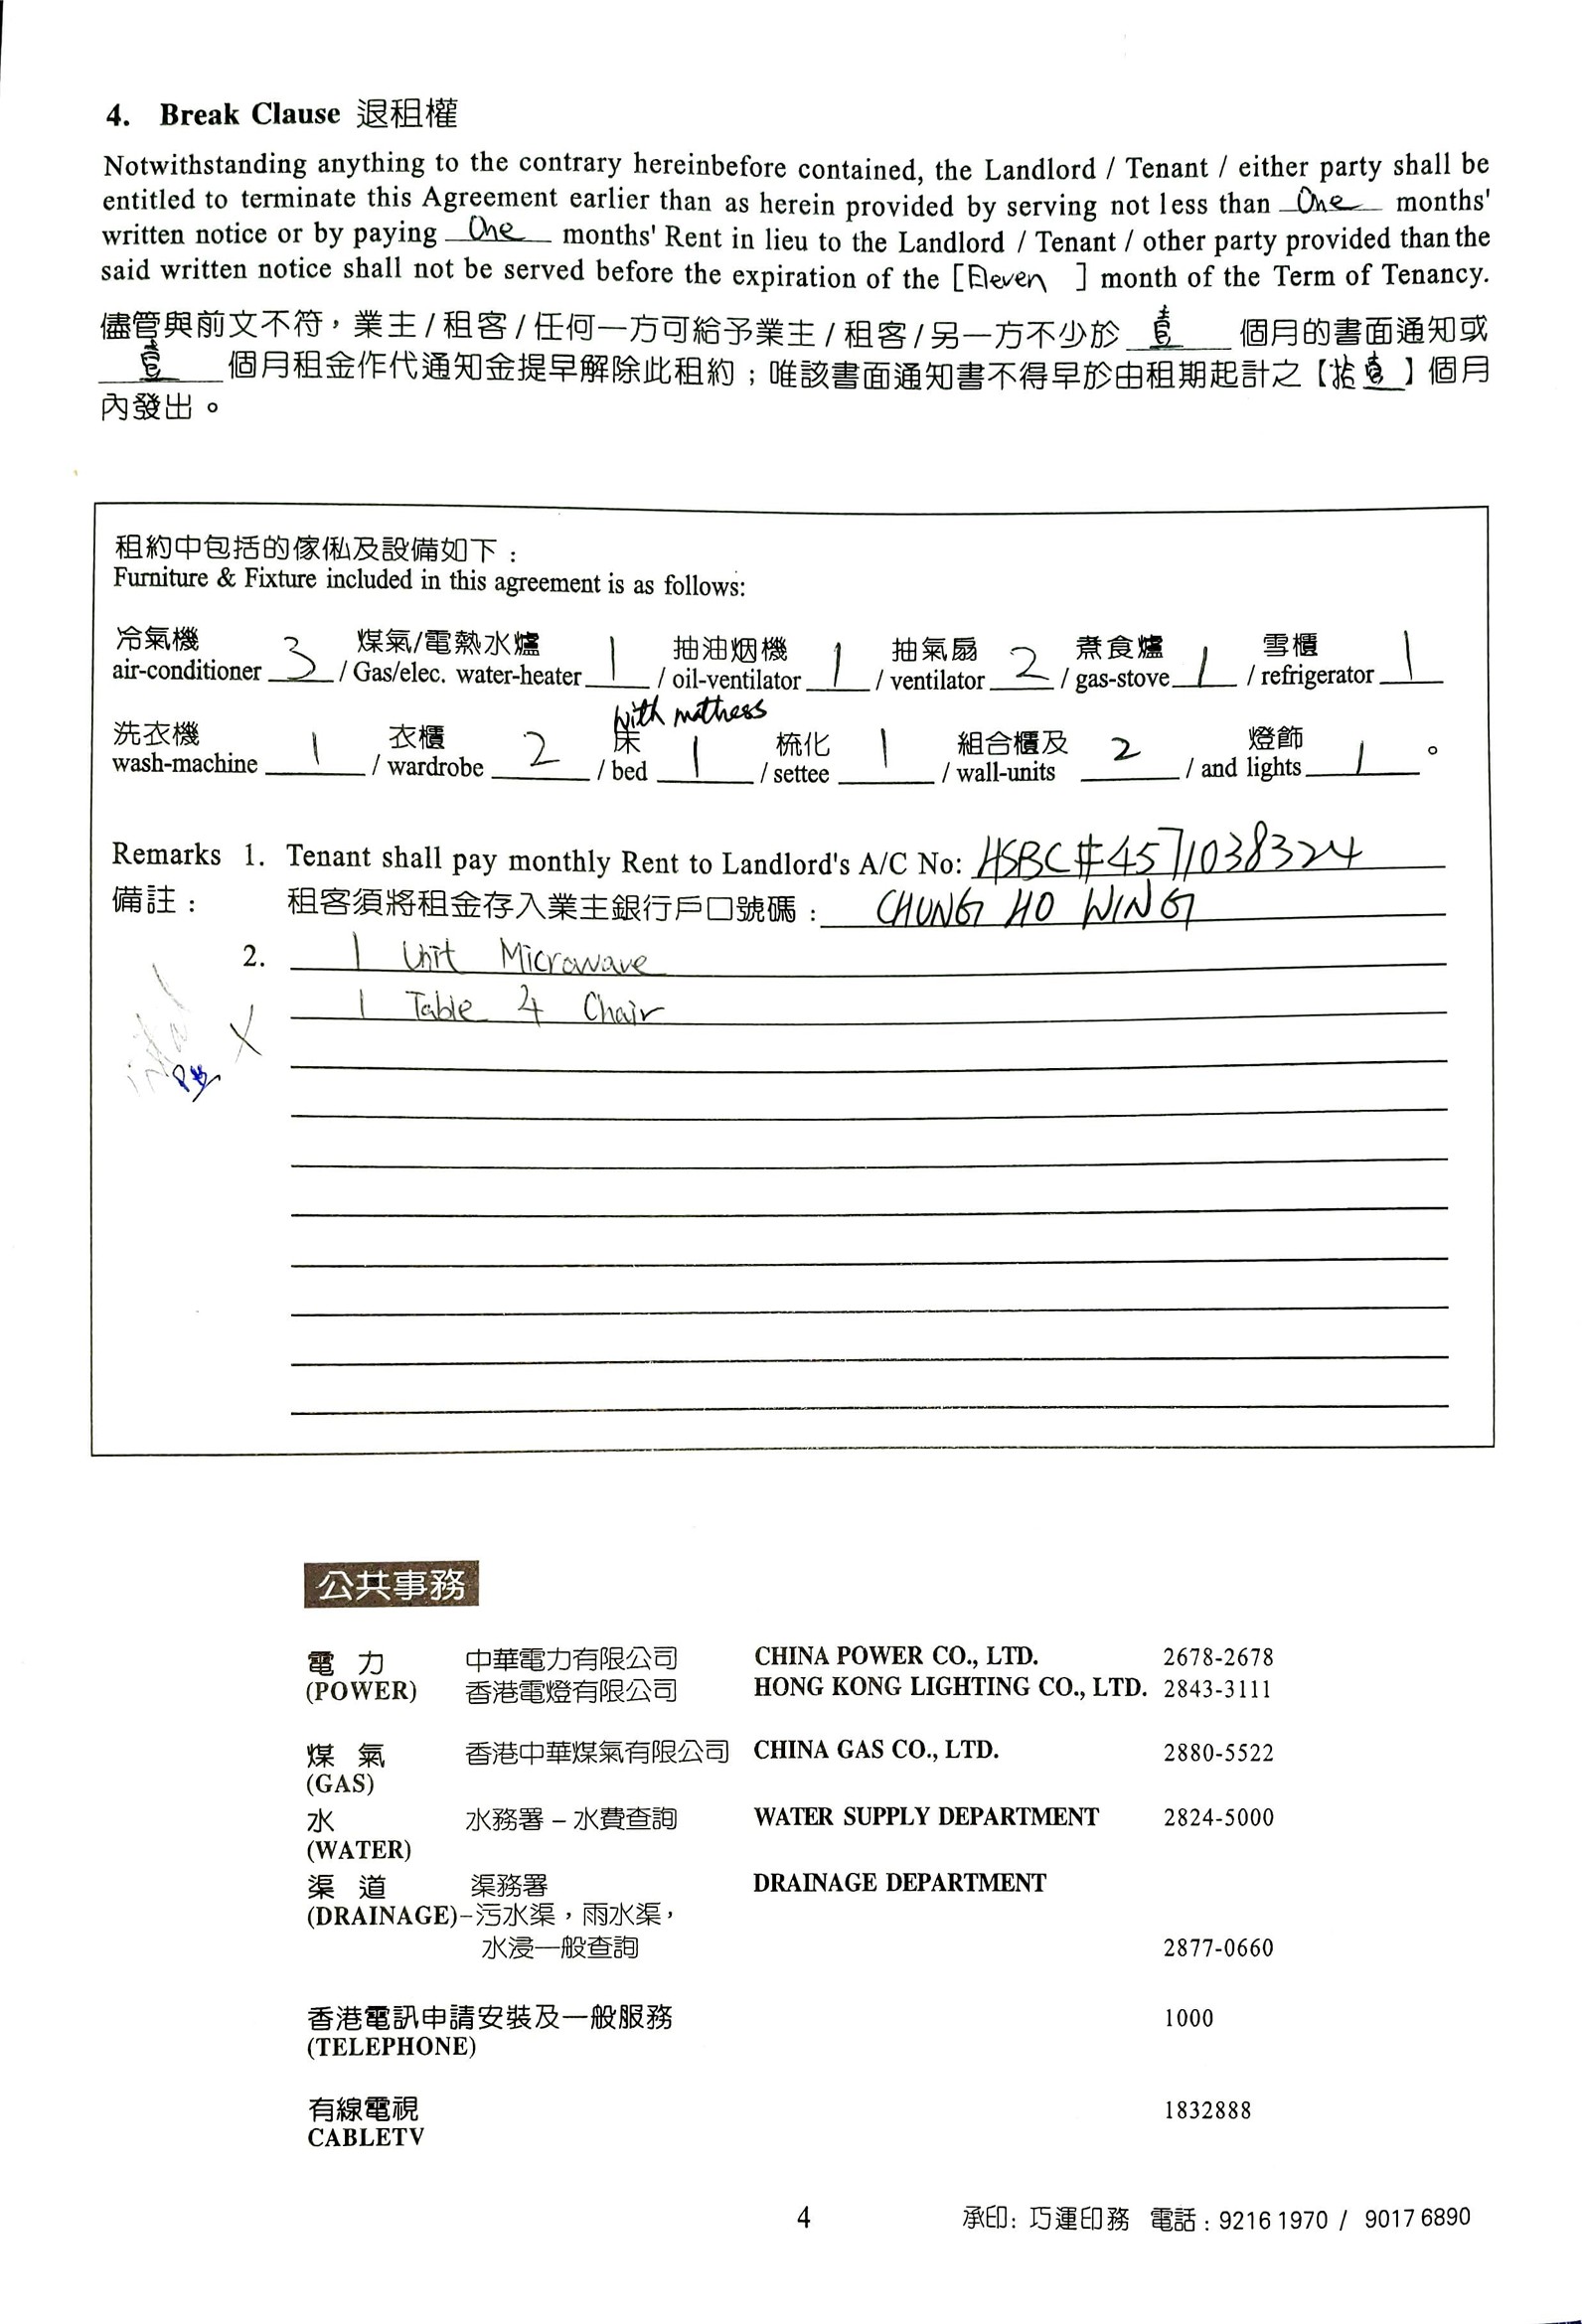 4. Break Clause 退租權
Notwithstanding anything to the contrary hereinbefore contained, the Landlord / Tenant / either party shall be
entitled to terminate this Agreement earlier than as herein provided by serving not less than One months'
written notice or by paying One months' Rent in lieu to the Landlord / Tenant / other party provided than the
said written notice shall not be served before the expiration of the [Eleven ] month of the Term of Tenancy.
儘管與前文不符，業主/租客/任何一方可給予業主/租客/另一方不少於 壹 個月的書面通知或
壹 個月租金作代通知金提早解除此租約；唯該書面通知書不得早於由租期起計之【拾壹】個月
內發出。
租約中包括的傢俬及設備如下：
Furniture & Fixture included in this agreement is as follows:
冷氣機 煤氣/電熱水爐 抽油烟機 抽氣扇 煮食爐 雪櫃
air-conditioner 3 / Gas/elec. water-heater 1 / oil-ventilator 1 / ventilator 2 / gas-stove 1 / refrigerator 1
with mattress
洗衣機 衣櫃 床 梳化 組合櫃及 燈飾
wash-machine 1 / wardrobe 2 / bed 1 / settee 1 / wall-units 2 / and lights 1 。
Remarks 1. Tenant shall pay monthly Rent to Landlord's A/C No: HSBC #4571038324
備註： 租客須將租金存入業主銀行戶口號碼： CHUNG HO WING
2. 1 Unit Microwave
1 Table 4 Chair
X
公共事務
電 力 中華電力有限公司 CHINA POWER CO., LTD. 2678-2678
(POWER) 香港電燈有限公司 HONG KONG LIGHTING CO., LTD. 2843-3111
煤 氣 香港中華煤氣有限公司 CHINA GAS CO., LTD. 2880-5522
(GAS)
水 水務署 – 水費查詢 WATER SUPPLY DEPARTMENT 2824-5000
(WATER)
渠 道 渠務署 DRAINAGE DEPARTMENT
(DRAINAGE)–污水渠，雨水渠，
水浸一般查詢 2877-0660
香港電訊申請安裝及一般服務 1000
(TELEPHONE)
有線電視 1832888
CABLETV
4 承印: 巧運印務 電話 : 9216 1970 / 9017 6890